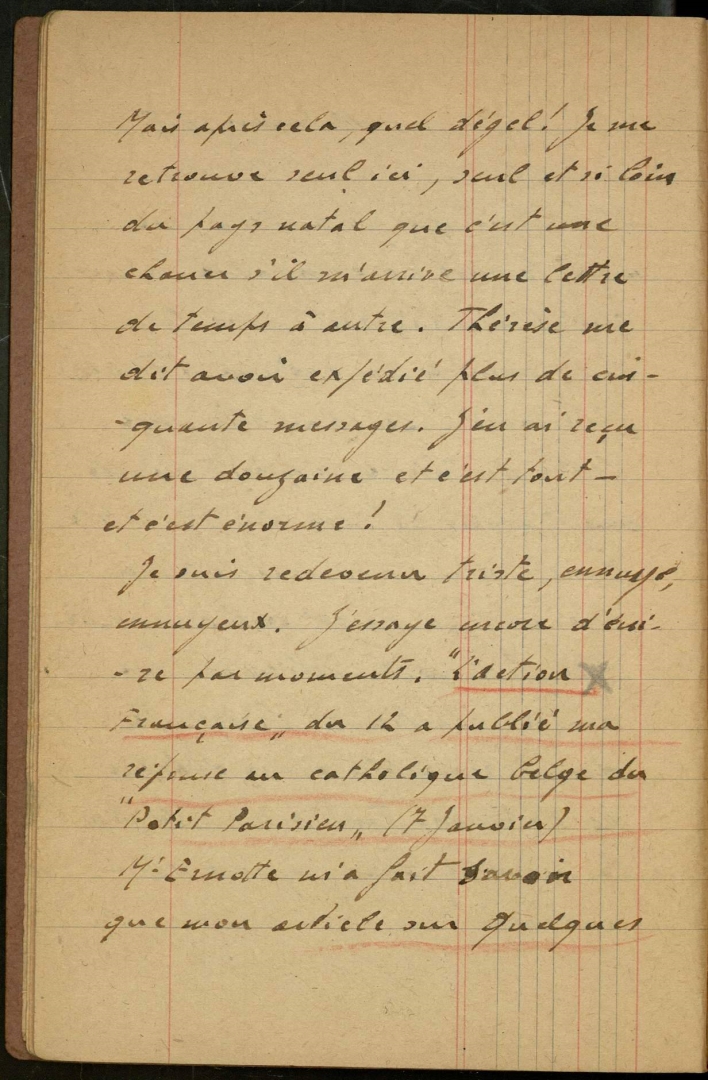 Mais après cela, quel dégel ! Je me
retrouve seul ici, seul et si loin
du pays natal que c'est une
chance s'il m'arrive une lettre
de temps à autre. Thérèse me
dit avoir expédié plus de cin-
-quante messages. J'en ai reçu
une douzaine et c'est tout -
et c'est énorme !
Je suis redevenu triste, ennuyé,
ennuyeux. J'essaye encore d'écri-
-re par moments. "L'Action
Française" du 12 a publié ma
réponse au catholique belge du
"Petit Parisien" (7 Janvier)
Mr Ernotte m'a fait savoir
que mon article sur Quelques